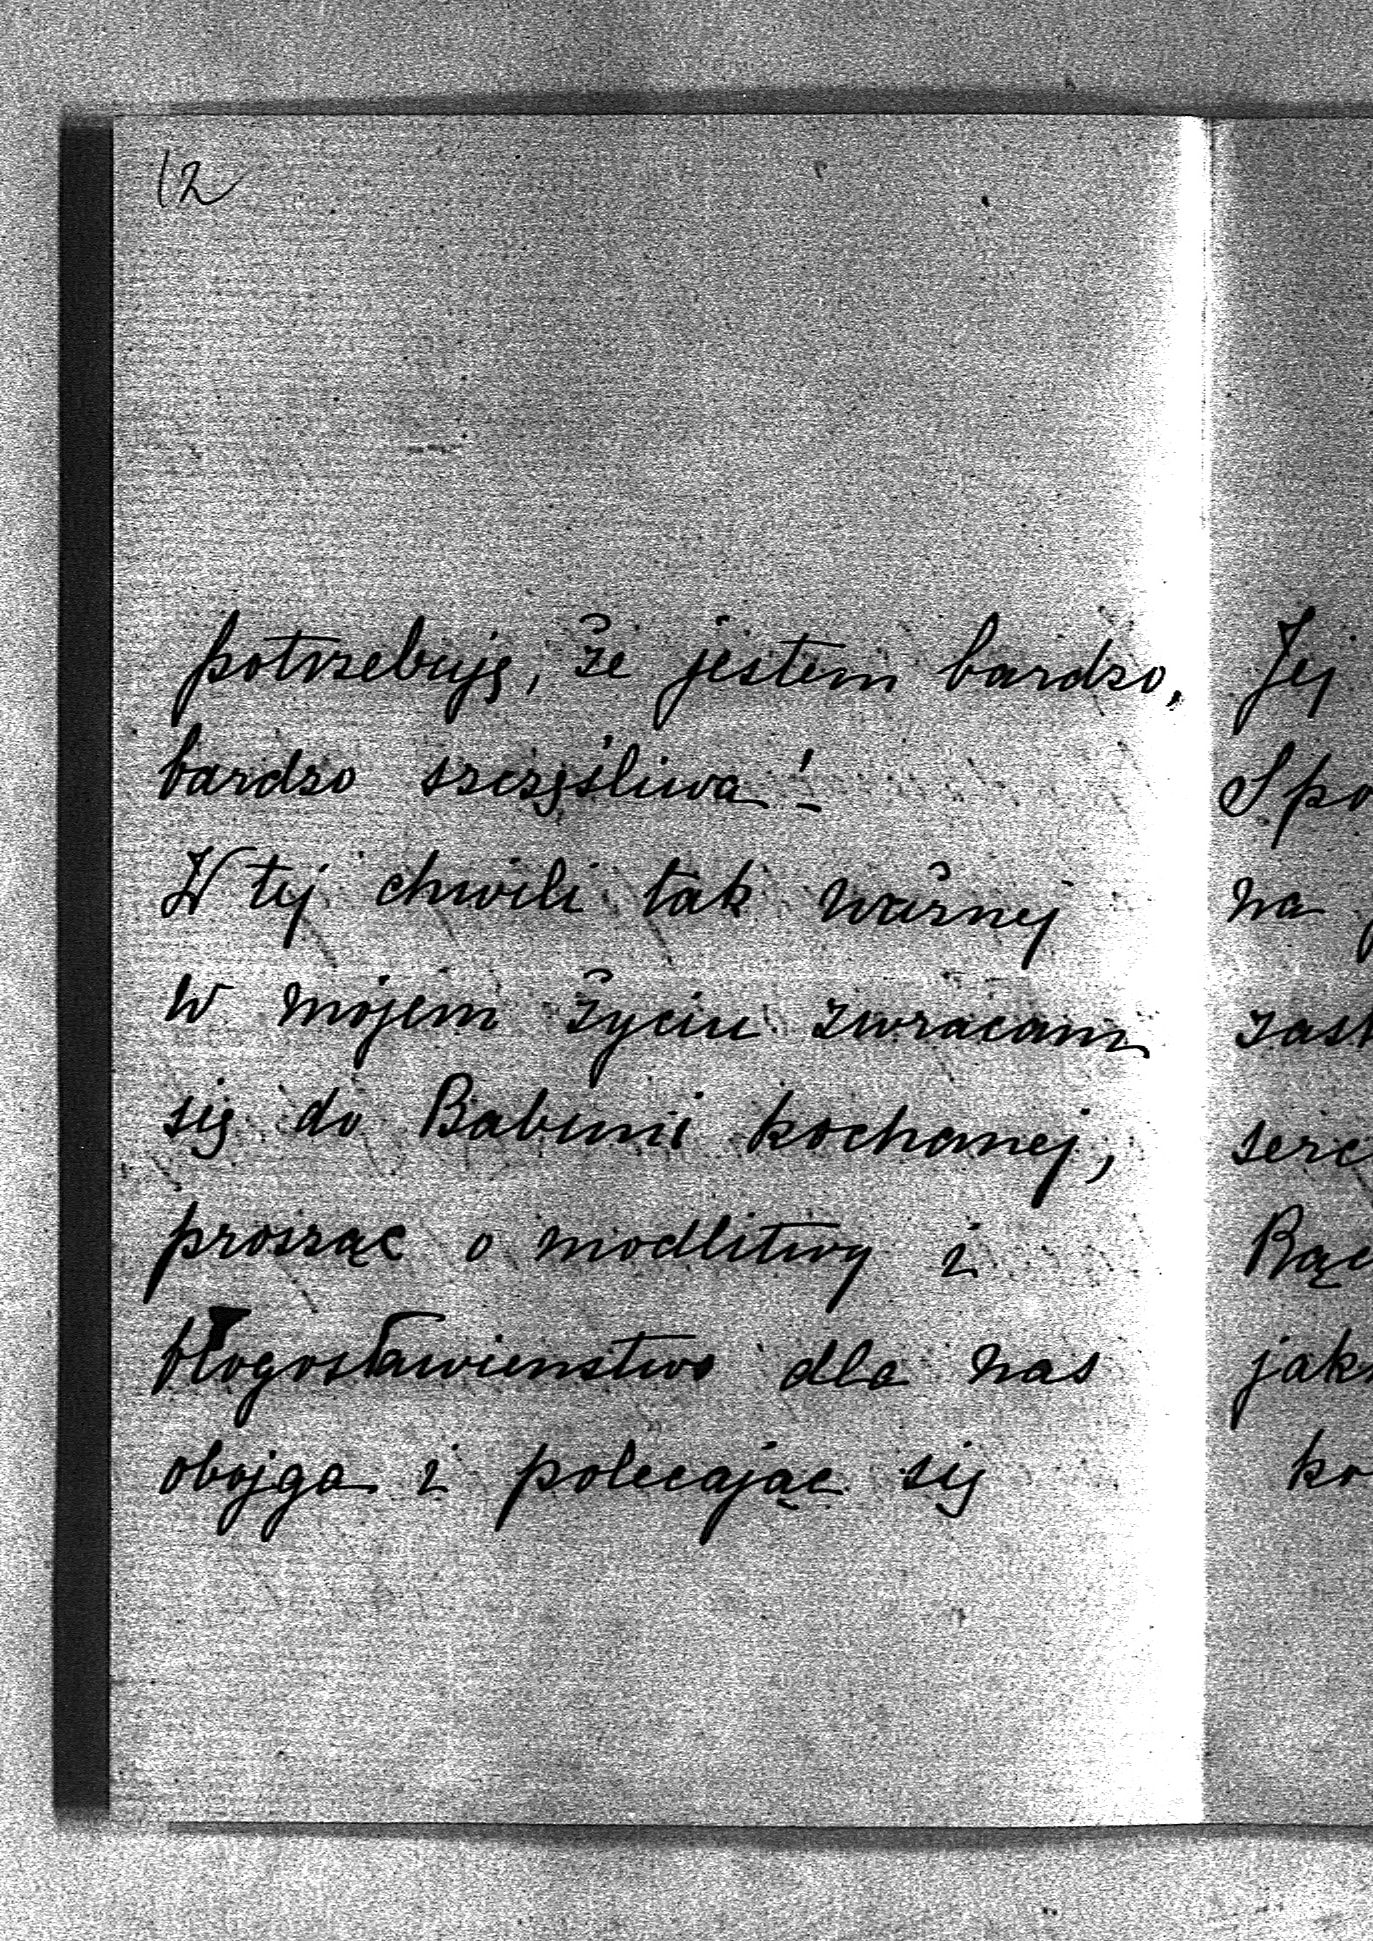 12
potrzebuję, że jestem bardzo,
bardzo szczęśliwa!
W tej chwili tak ważnej
w mojem życiu zwracam
się do Babuni kochanej,
prosząc o modlitwy i
błogosławienstwo dla nas
obojga i polecając się
Jej
Spo
na
zast
serc
Bąd
jak
ko